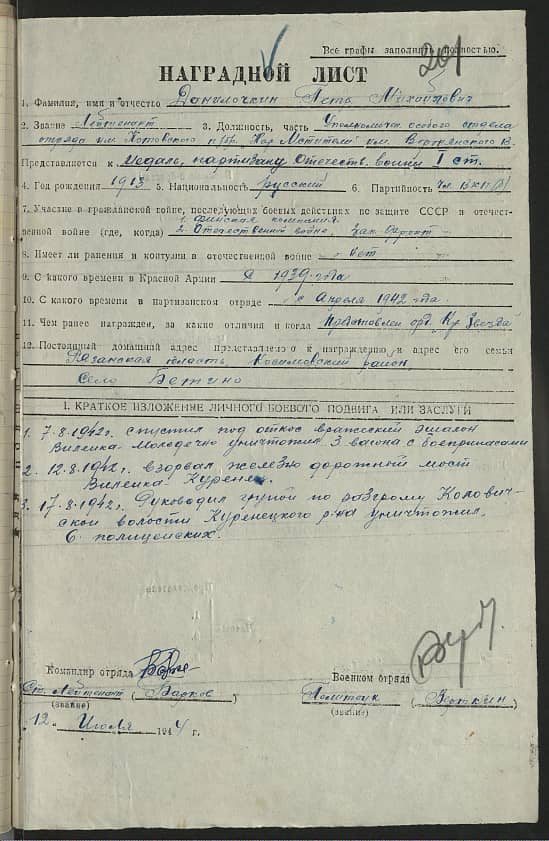 Все графы заполнить полностью.
201
НАГРАДНОЙ ЛИСТ
1. Фамилия, имя и отчество Данилочкин Петр Михайлович
2. Звание Лейтенант 3. Должность, часть Уполномочен. особого отдела
отряда им. Котовского п/бр. Нар. Мстители им. Воронянского В.
Представляется к медаль, партизану Отечеств. войны I ст.
4. Год рождения 1913 5. Национальность русский 6. Партийность чл. ВКП(б)
7. Участие в гражданской войне, последующих боевых действиях по защите СССР и отечест-
1. Финская компания.
венной войне (где, когда) 2. Отечественной войне, Зап. Фронт
8. Имеет ли ранения и контузии в отечественной войне Нет
9. С какого времени в Красной Армии С 1939 года
10. С какого времени в партизанском отряде с Апреля 1942 года
11. Чем ранее награжден, за какие отличия и когда Представлен орд. Кр. Звезда
12. Постоянный домашний адрес представляемого к награждению и адрес его семьи
Рязанская область, Касимовский район,
село Бетино
I. КРАТКОЕ ИЗЛОЖЕНИЕ ЛИЧНОГО БОЕВОГО ПОДВИГА ИЛИ ЗАСЛУГИ
1. 7.8.1942 г. спустил под откос вражеский эшалон
Вилейка-Молодечно уничтожил 3 вагона с боеприпасами
2. 12.8.1942 г. взорвал железно дорожный мост
Вилейка-Куренец.
3. 17.8.1942 г. Руководил групой по разгрому Колович-
ской волости Куренецкого р-на уничтожил
6. полицейских.
Командир отряда
Военком отряда
Ст. Лейтенант (
)
Политрук (
)
(звание)
(звание)
"12" Июля 1944 г.